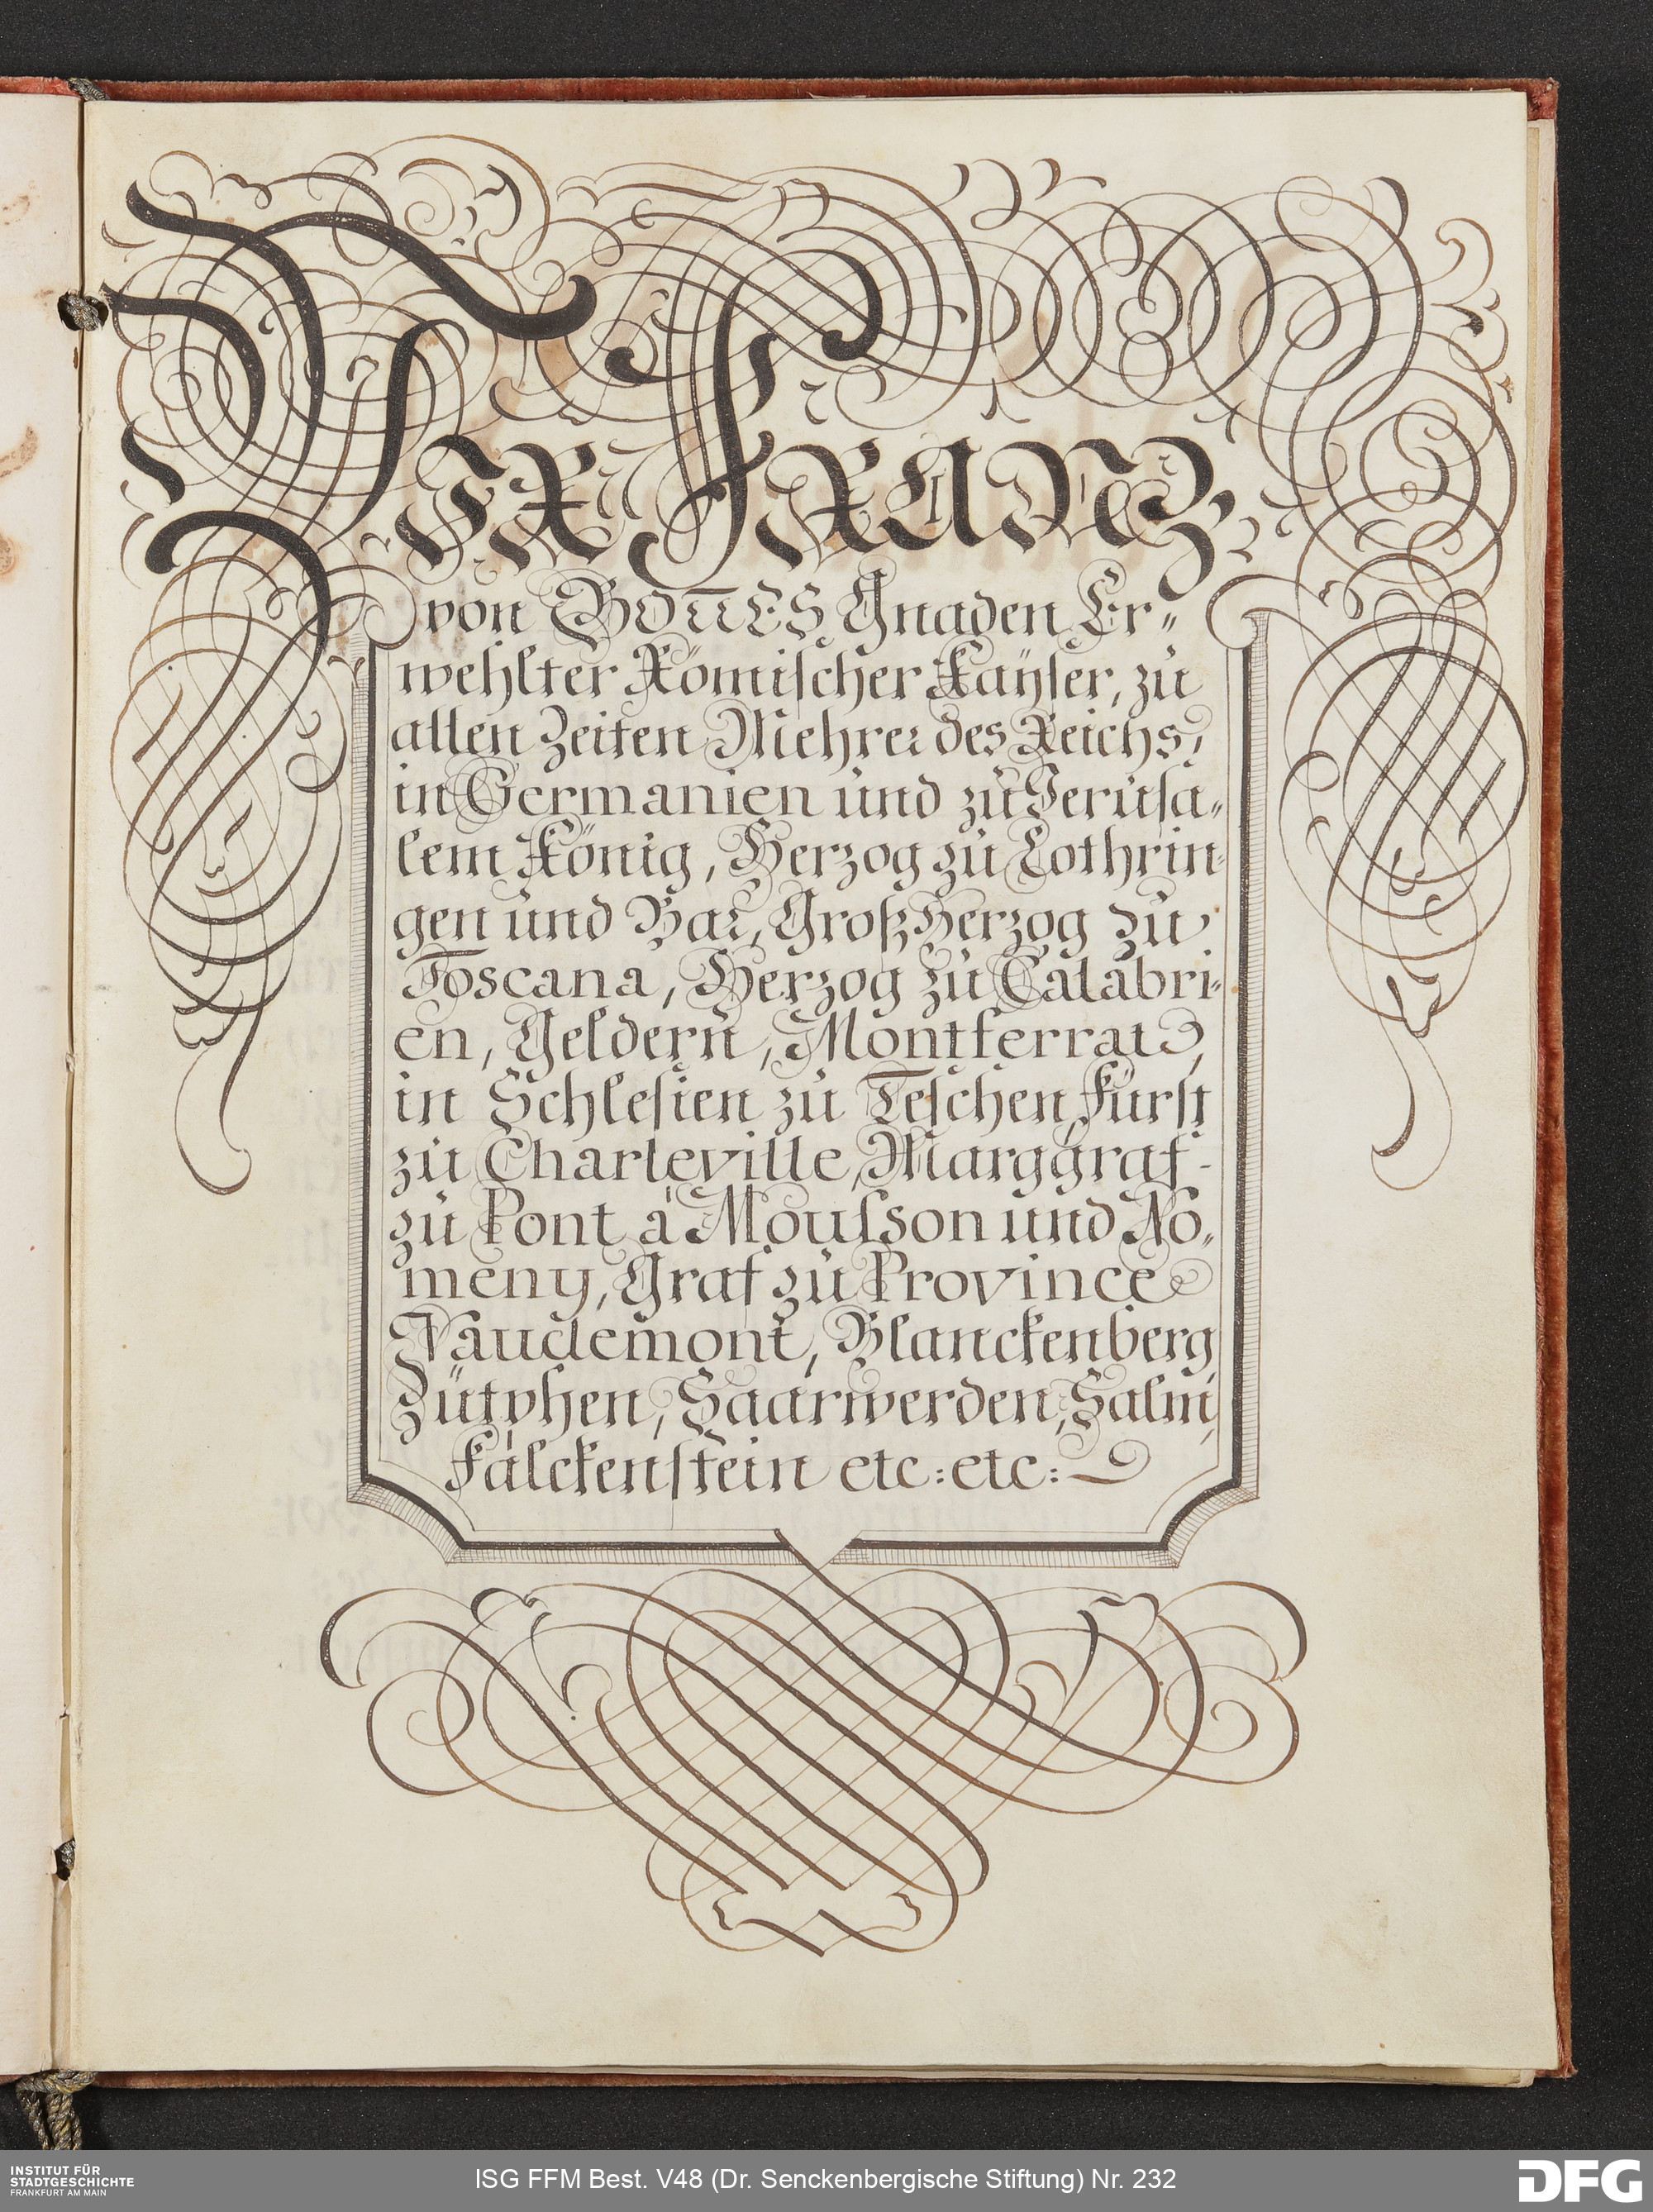 WIR FRANZ
von GOTTES Gnaden Er„
wehlter Römischer Kaÿser, zu
allen Zeiten Mehrer des Reichs,
in Germanien und zu Jerusa„
lem König, Herzog zu Lothrin„
gen und Bar, GroßHerzog zu
Toscana, Herzog zu Calabri„
en, Geldern, Montferrat,
in Schlesien zu Teschen, Fürst
zu Charleville, Marggraf
zu Pont à Mousson und No„
meny, Graf zu Province
Vaudemont, Blanckenberg
Zütphen, Saarwerden, Salm,
Falckenstein etc: etc:
INSTITUT FÜR
STADTGESCHICHTE
FRANKFURT AM MAIN
ISG FFM Best. V48 (Dr. Senckenbergische Stiftung) Nr. 232
DFG